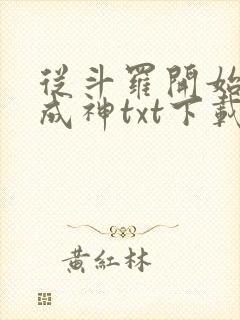 從斗羅開始
成神txt下載
黃紅林